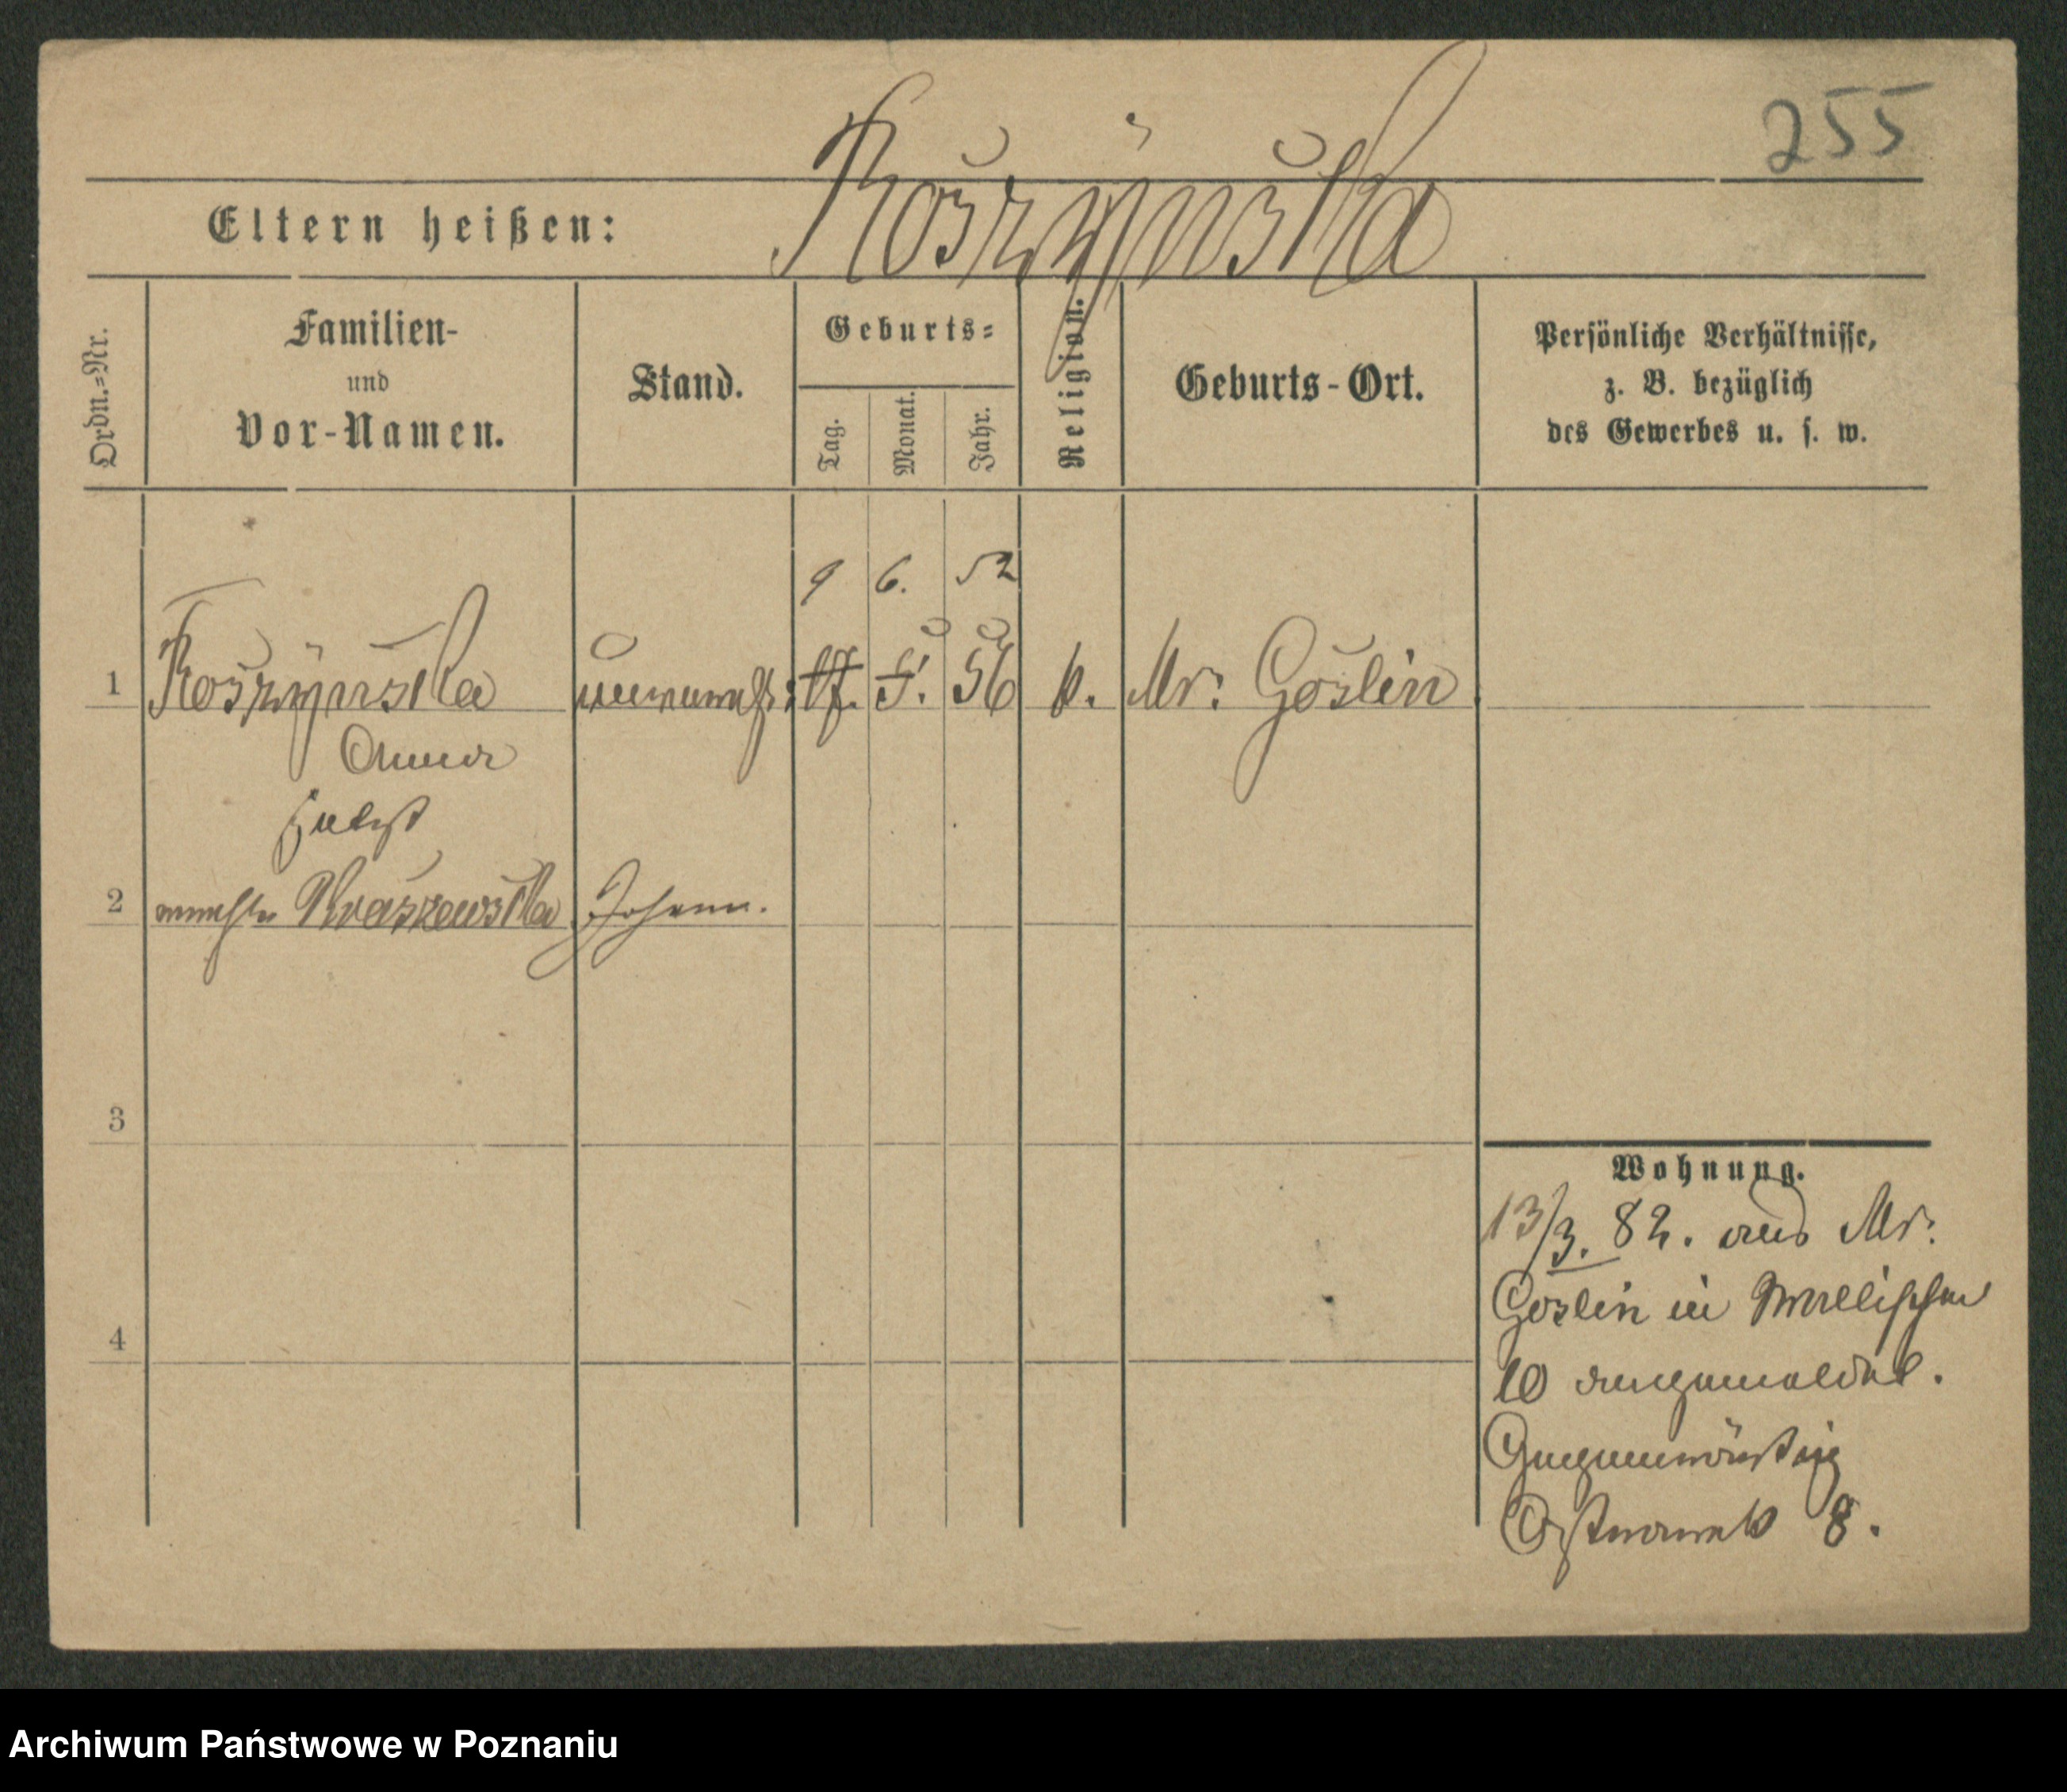 255
Koszynska
Eltern heißen:
Ordn.=Nr.
Familien-
und
Vor-Namen.
Stand.
Geburts=
Tag.
Monat.
Jahr.
Religion.
Geburts-Ort.
Persönliche Verhältnisse,
z. B. bezüglich
des Gewerbes u. s. w.
9 6. 52
1 unverehl: 17. 5. 56 k. Mr: Goslin
Anna
2 Kraszewska Johann.
3
4
Wohnung.
13/3. 82. aus Mr:
Goslin in Wallischei
10 angemeldet.
Gegenwärtig
Ostrowek 8.
Archiwum Państwowe w Poznaniu